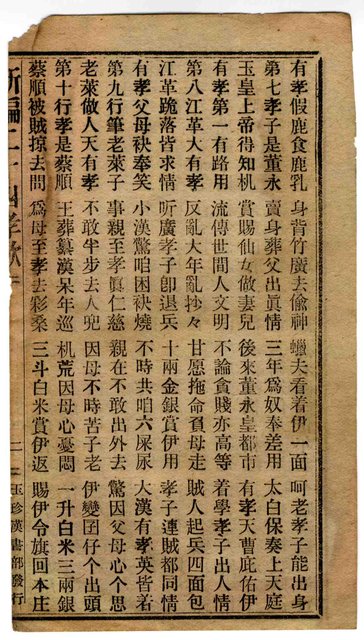 有孝假鹿食鹿乳 身背竹廣去偷神 蠟夫看着伊一面 呵老孝子能出身
第七孝子是董永 賣身葬父出眞情 三年爲奴奉差用 太白保奏上天庭
玉皇上帝得知机 賞賜仙女做妻兒 後來董永皇都市 有孝天曹庇佑伊
有孝第一有路用 流傳世間人文明 不論貧賤亦高等 着學孝子出人情
第八江革大有孝 反亂大年亂抄々 甘愿拖命負母走 賊人起兵四面包
江革跪落皆求情 听廣孝子卽退兵 十兩金銀賞伊用 孝子連賊都同情
有孝父母袂奉笑 小漢驚咱困袂燒 不時共咱六屎尿 大漢有孝英皆着
第九行筆老萊子 事親至孝眞仁慈 親在不敢出外去 驚因父母心个思
老萊做人天有孝 不敢半步去人兜 因母不時苦子老 伊變囝仔个出頭
第十行孝是蔡順 王莽纂漢呆年巡 机荒因母心憂悶 一升白米三兩銀
蔡順被賊掠去問 爲母至孝去彩桑 三斗白米賞伊返 賜伊令旗回本庄
新編二十四孝歌 二 玉珍漢書部發行